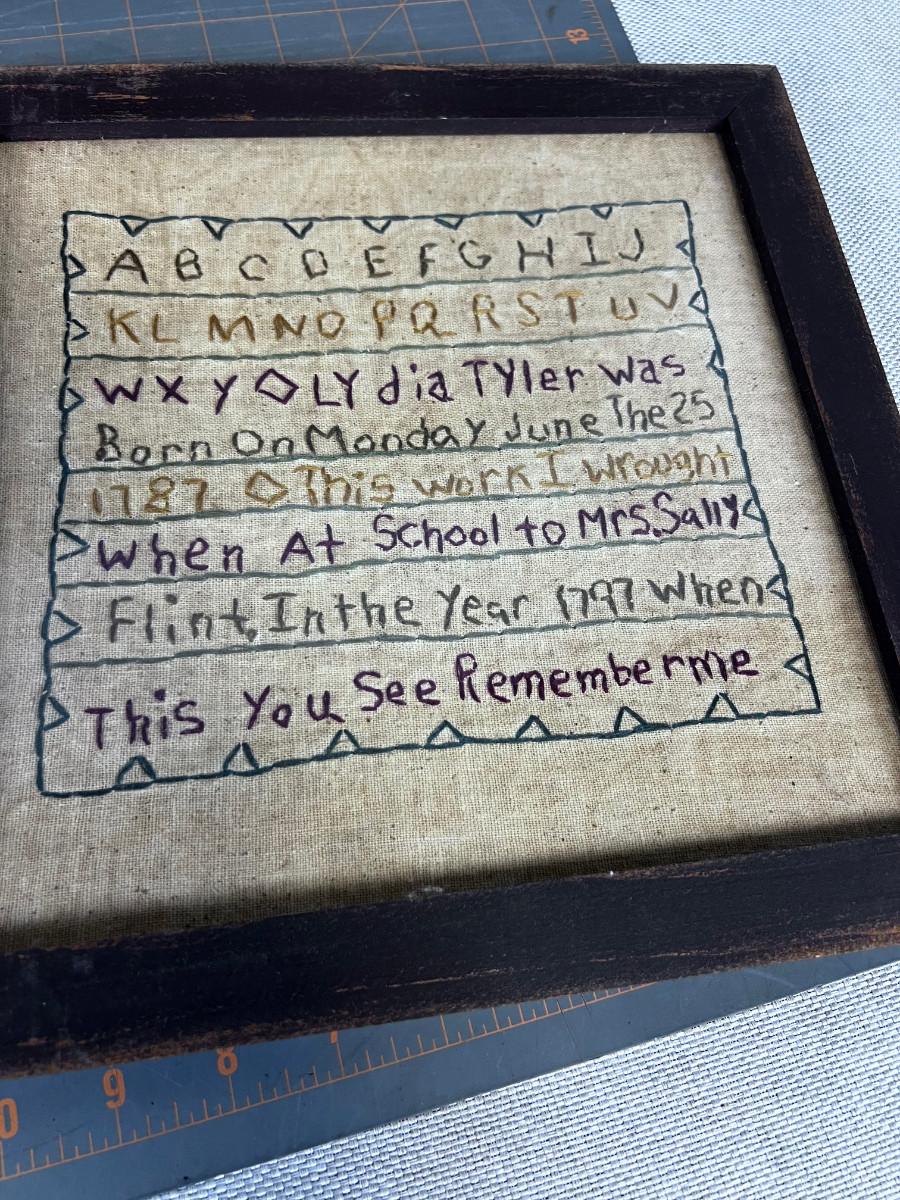 13
A B C D E F G H I J
K L M N O P Q R S T U V
W X Y LYdia TYler was
Born On Monday June The 25
1787 This work I wrought
When At School to Mrs. Sally
Flint, In the Year 1797 When
This You See Remember me
7
8
9
0